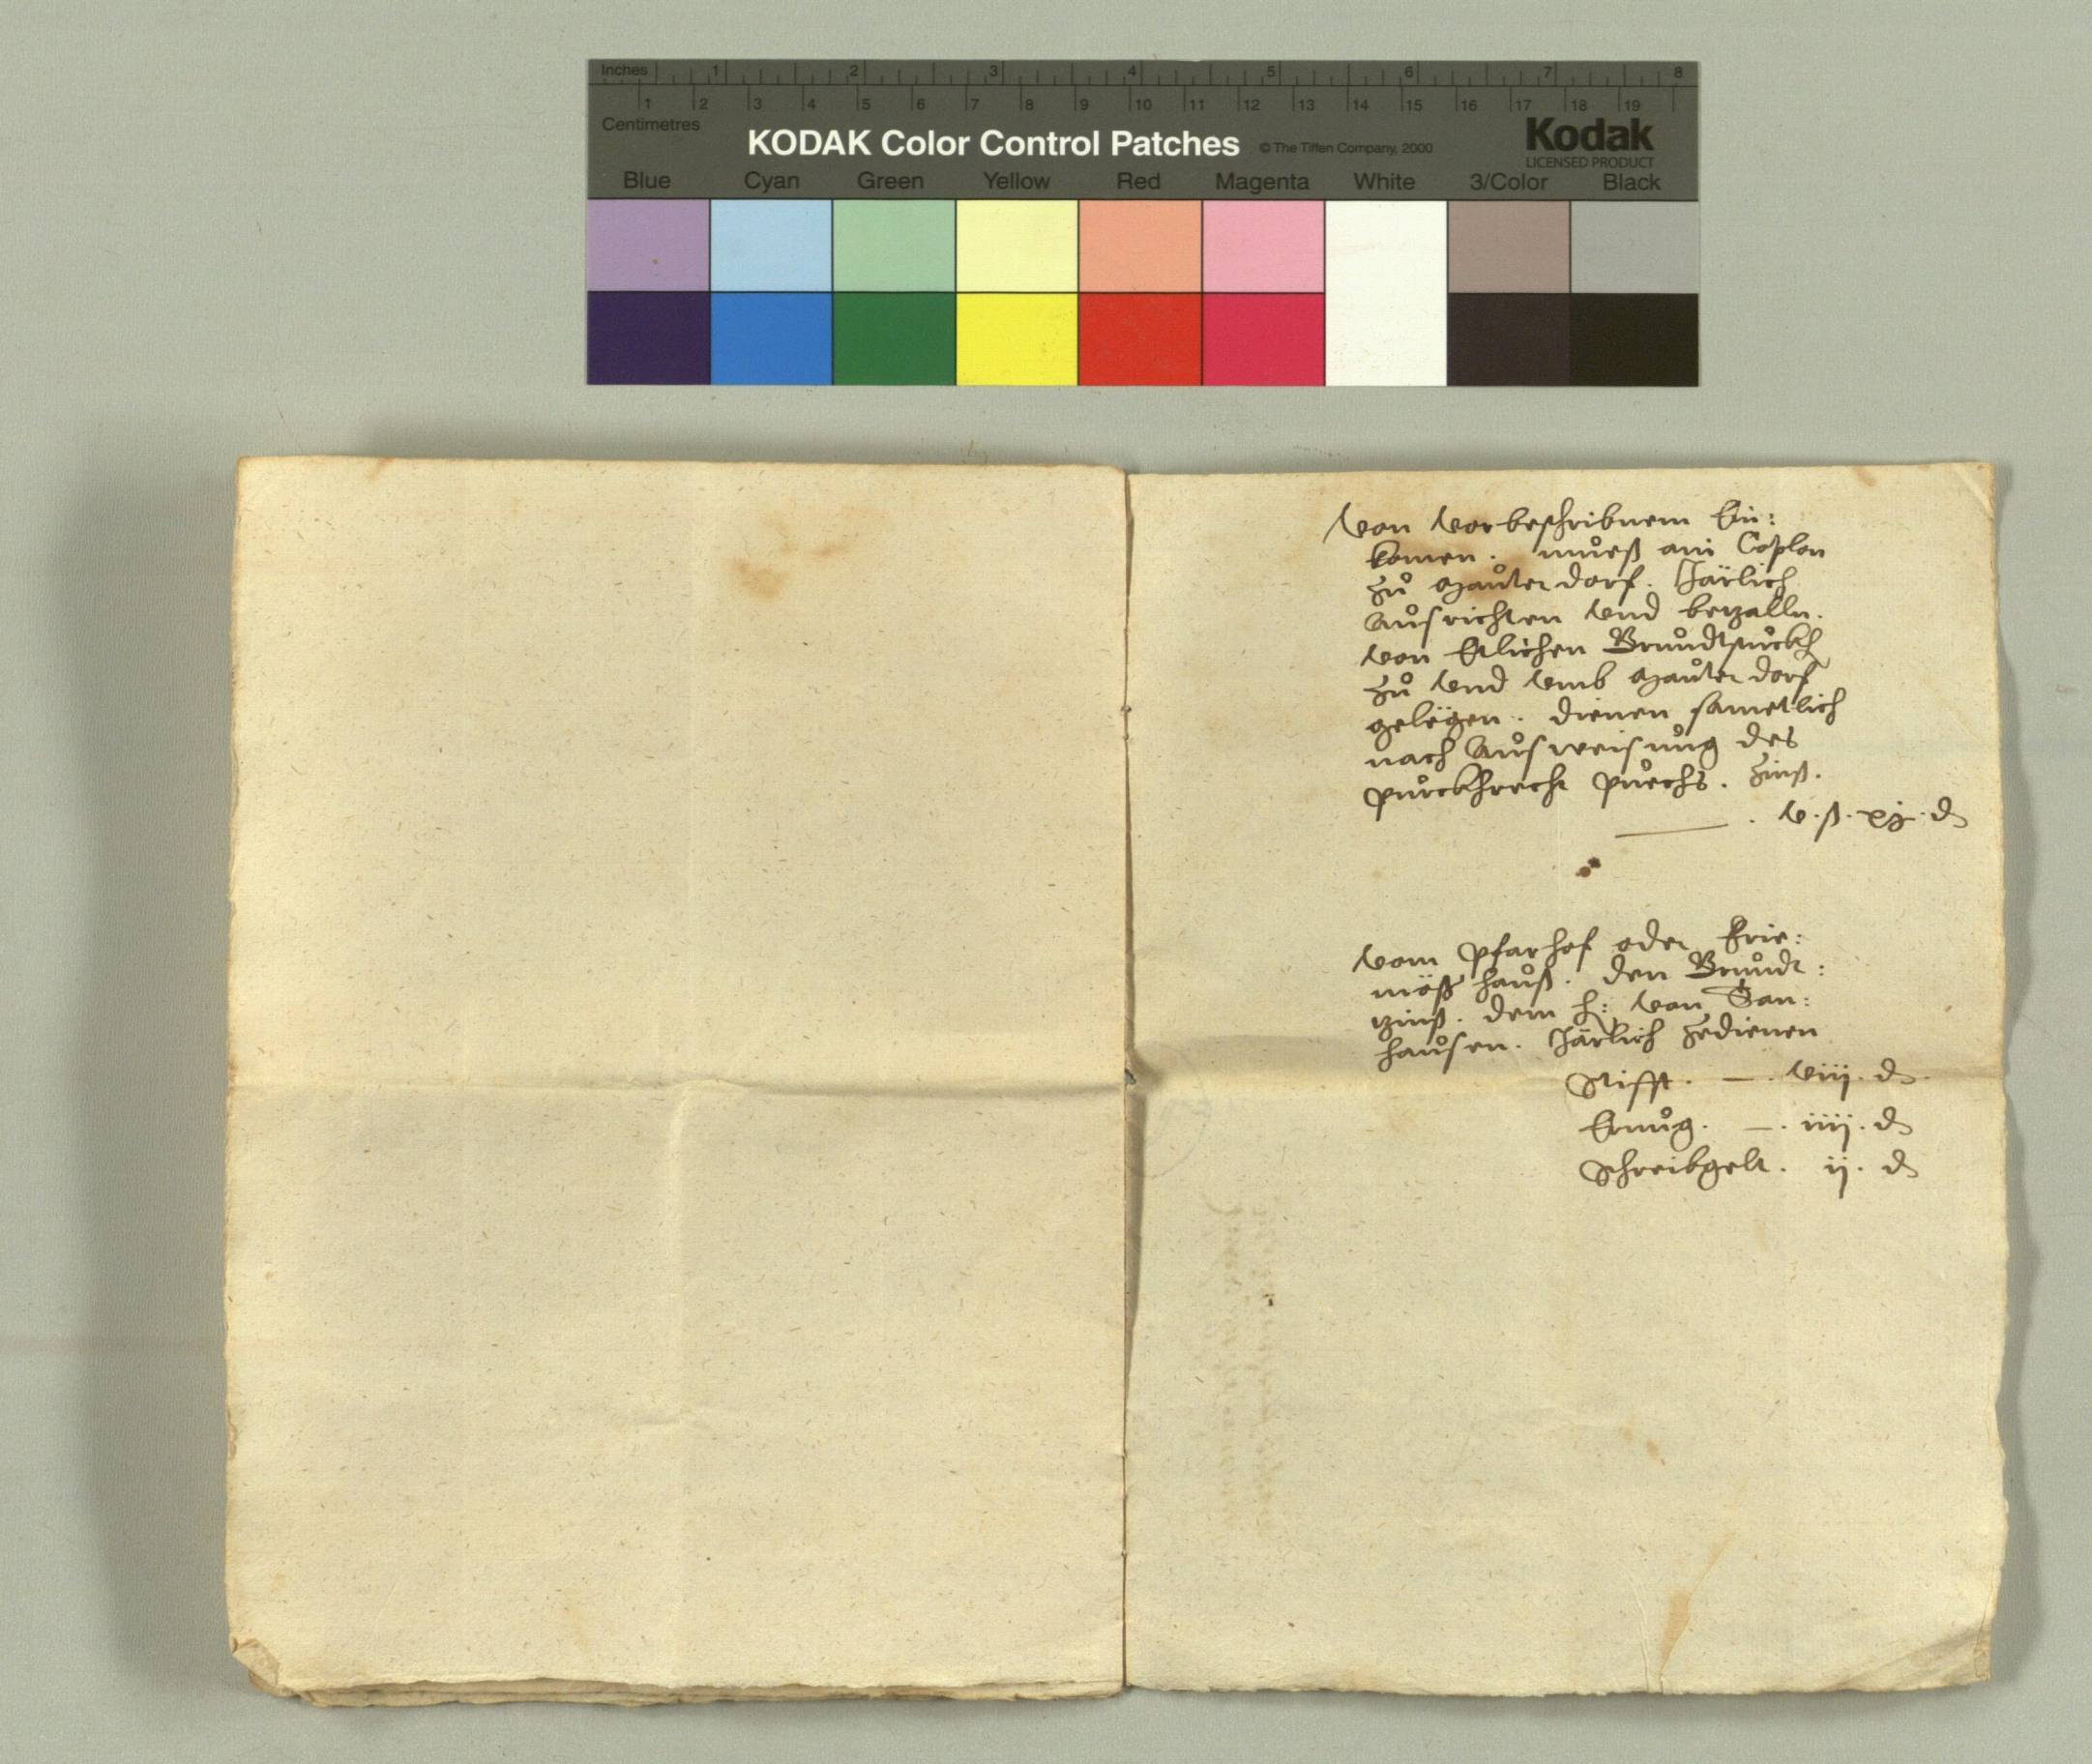 Inches 1 2 3 4 5 6 7 8
1 2 3 4 5 6 7 8 9 10 11 12 13 14 15 16 17 18 19
Centimetres
KODAK Color Control Patches © The Tiffen Company, 2000 Kodak
LICENSED PRODUCT
Blue Cyan Green Yellow Red Magenta White 3/Color Black
Von Vorbeschribnem Ein:
komen. mueß ain Caplan
zů Mauterdorf. Järlich
Außrichten vnd betzalln.
von Etlichen Grundtstückh
zů vnd vmb Mauterdorf
gelëgen. dienen sametlich
nach Außweisung des
purckhrecht puechs. Zinß.
v. ß. xj. d
Vom Pfarhof oder Frie:
mëß hauß. den Grundt:
tzinß. dem h: von Than:
hausen. Järlich zedienen
Stifft. — viij. d.
Erung. — iiij. d
Schreibgelt. ij. d